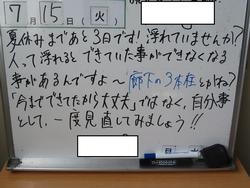 7月15日(火)
夏休みまであと3日です!浮れていませんか?
人って浮れるとできていた事ができなくなる
事があるんですよ～廊下の3本柱とかね?
「今までできてたから大丈夫」ではなく、自分事
として、一度見直してみましょう!!
日